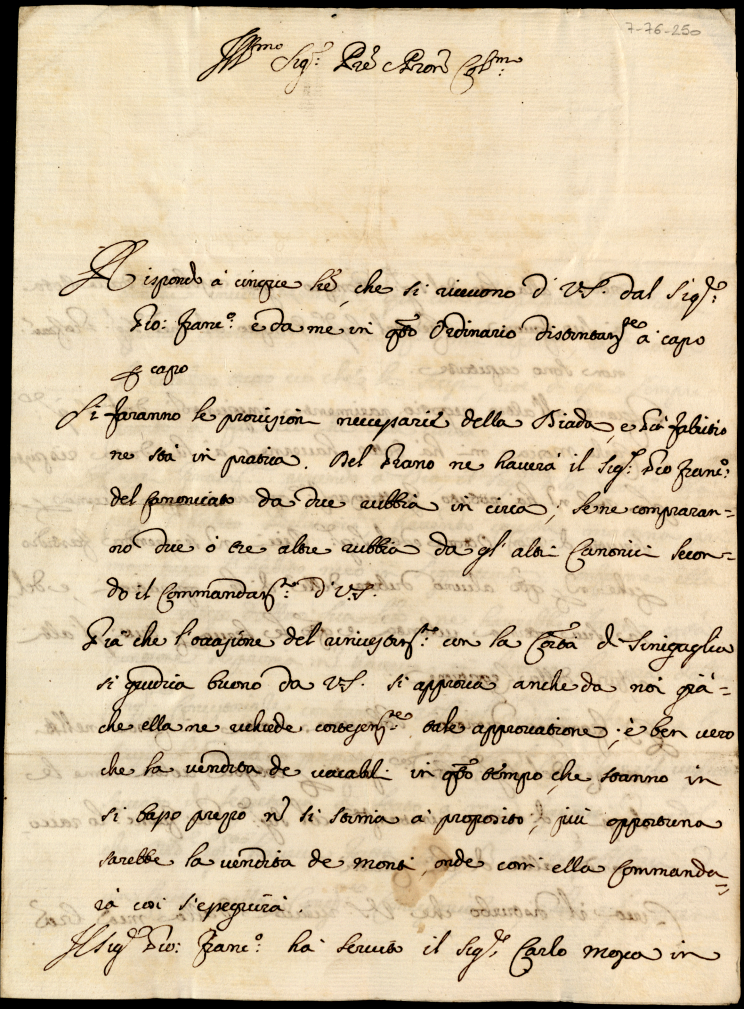 7-76-250
Ill.mo Sig.r Pre e Pron Col.mo
Rispondo à cinque lre, che si ricevono d' V.S. dal Sig.r
Gio: Franc.o e da me in qto Ordinario distintam.te à capo
p capo
Si faranno le provisioni necessarie della Biada, e Gio: Fabritio
ne stà in pratica. Del Grano ne haverà il Sig.r Gio Franc.o
del Canonicato da due rubbia in circa; se ne compraran-
no due ò tre altre rubbia da gl' altri Canonici secon-
do il Commandam.to d' V.S.
Già che l'occasione del rinvestim.to con la Com.tà di Sinigaglia
si giudica buono da V.S. si approva anche da noi già-
che ella ne richiede cortesem.te tale approvatione; è ben vero
che la vendita de vacabli in qto tempo, che stanno in
sì basso prezzo nō si stima à proposito, più opportuna
sarebbe la vendita de monti, onde com' ella Commanda-
rà così s'eseguirà.
Il Sig.r Gio: Franc.o hà servito il Sig.r Carlo Mosca in